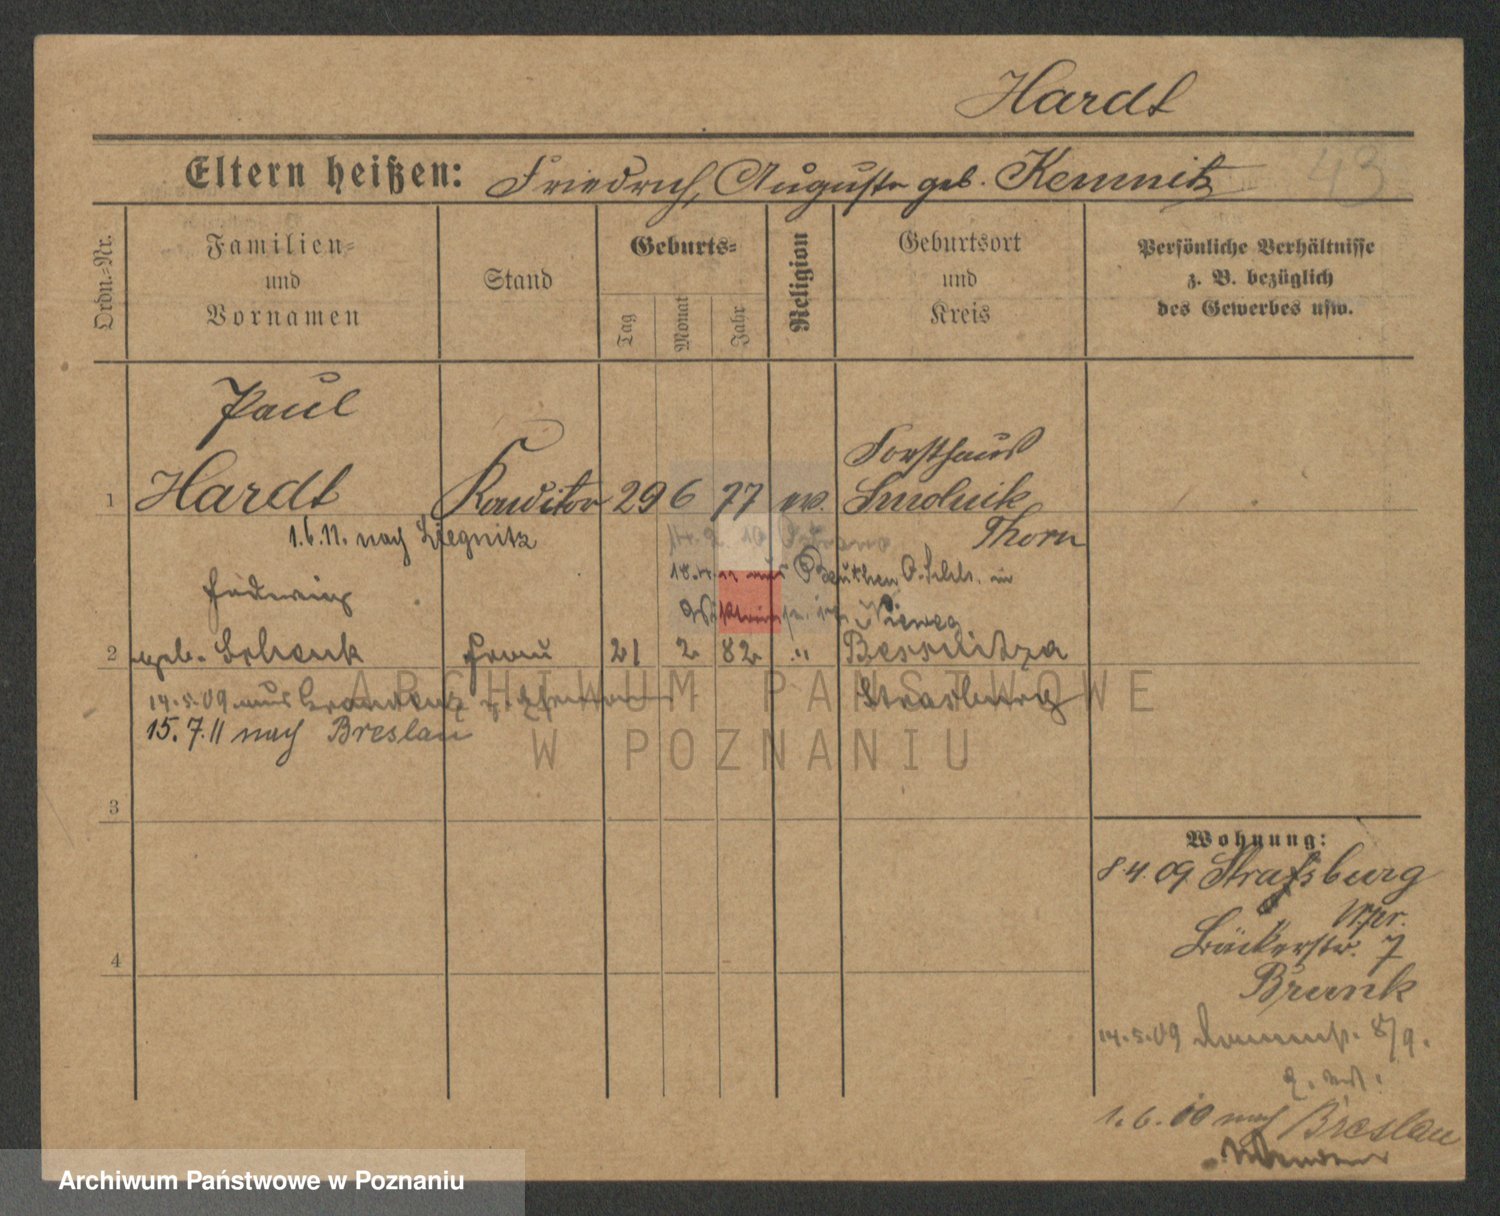 Hardt
Eltern heißen: Friedrich, Auguste geb. Kemnitz
43
Ordn.=Nr.
Familien=
und
Vornamen
Stand
Geburts=
Tag
Monat
Jahr
Religion
Geburtsort
und
Kreis
Persönliche Verhältnisse
z. B. bezüglich
des Gewerbes usw.
Paul
1 Hardt Konditor 29 6 77 ev. Forsthaus
Smolnik
Thorn
1.6.11. nach Liegnitz
Beuthen O. Schl. in
Hedwig
2 geb. Schenk Frau 21 2 82 " 
Strasburg
14.5.09 aus Graudenz
15.7.11 nach Breslau
3
4
Wohnung:
8.4.09 Strafsburg
Wpr.
Bäckerstr. 7
Brunk
14.5.09 8/9.
1.6.10 nach Breslau
ARCHIWUM PAŃSTWOWE
W POZNANIU
Archiwum Państwowe w Poznaniu